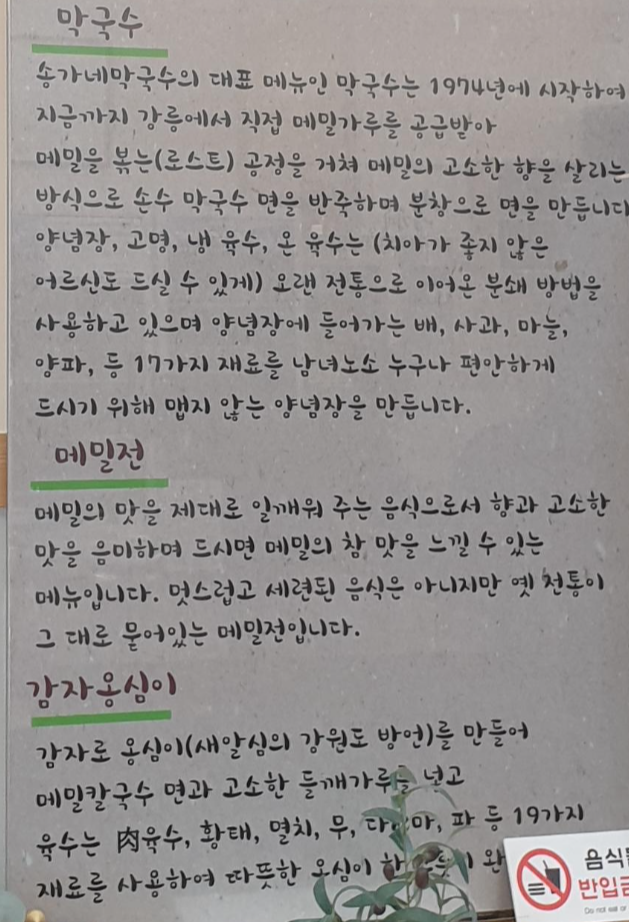 막국수
송가네막국수의 대표 메뉴인 막국수는 1974년에 시작하여
지금까지 강릉에서 직접 메밀가루를 공급받아
메밀을 볶는(로스트) 공정을 거쳐 메밀의 고소한 향을 살리는
방식으로 손수 막국수 면을 반죽하며 분창으로 면을 만듭니다
양념장, 고명, 냉 육수, 온 육수는 (치아가 좋지 않은
어르신도 드실 수 있게) 오랜 전통으로 이어온 분쇄 방법을
사용하고 있으며 양념장에 들어가는 배, 사과, 마늘,
양파, 등 17가지 재료를 남녀노소 누구나 편안하게
드시기 위해 맵지 않는 양념장을 만듭니다.
메밀전
메밀의 맛을 제대로 일깨워 주는 음식으로서 향과 고소한
맛을 음미하며 드시면 메밀의 참 맛을 느낄 수 있는
메뉴입니다. 멋스럽고 세련된 음식은 아니지만 옛 전통이
그 대로 묻어있는 메밀전입니다.
감자옹심이
감자로 옹심이(새알심의 강원도 방언)를 만들어
메밀칼국수 면과 고소한 들깨가루를 넣고
육수는 肉육수, 황태, 멸치, 무, 파 등 19가지
재료를 사용하여 따뜻한 옹심이
음식
반입금
Do not eat or